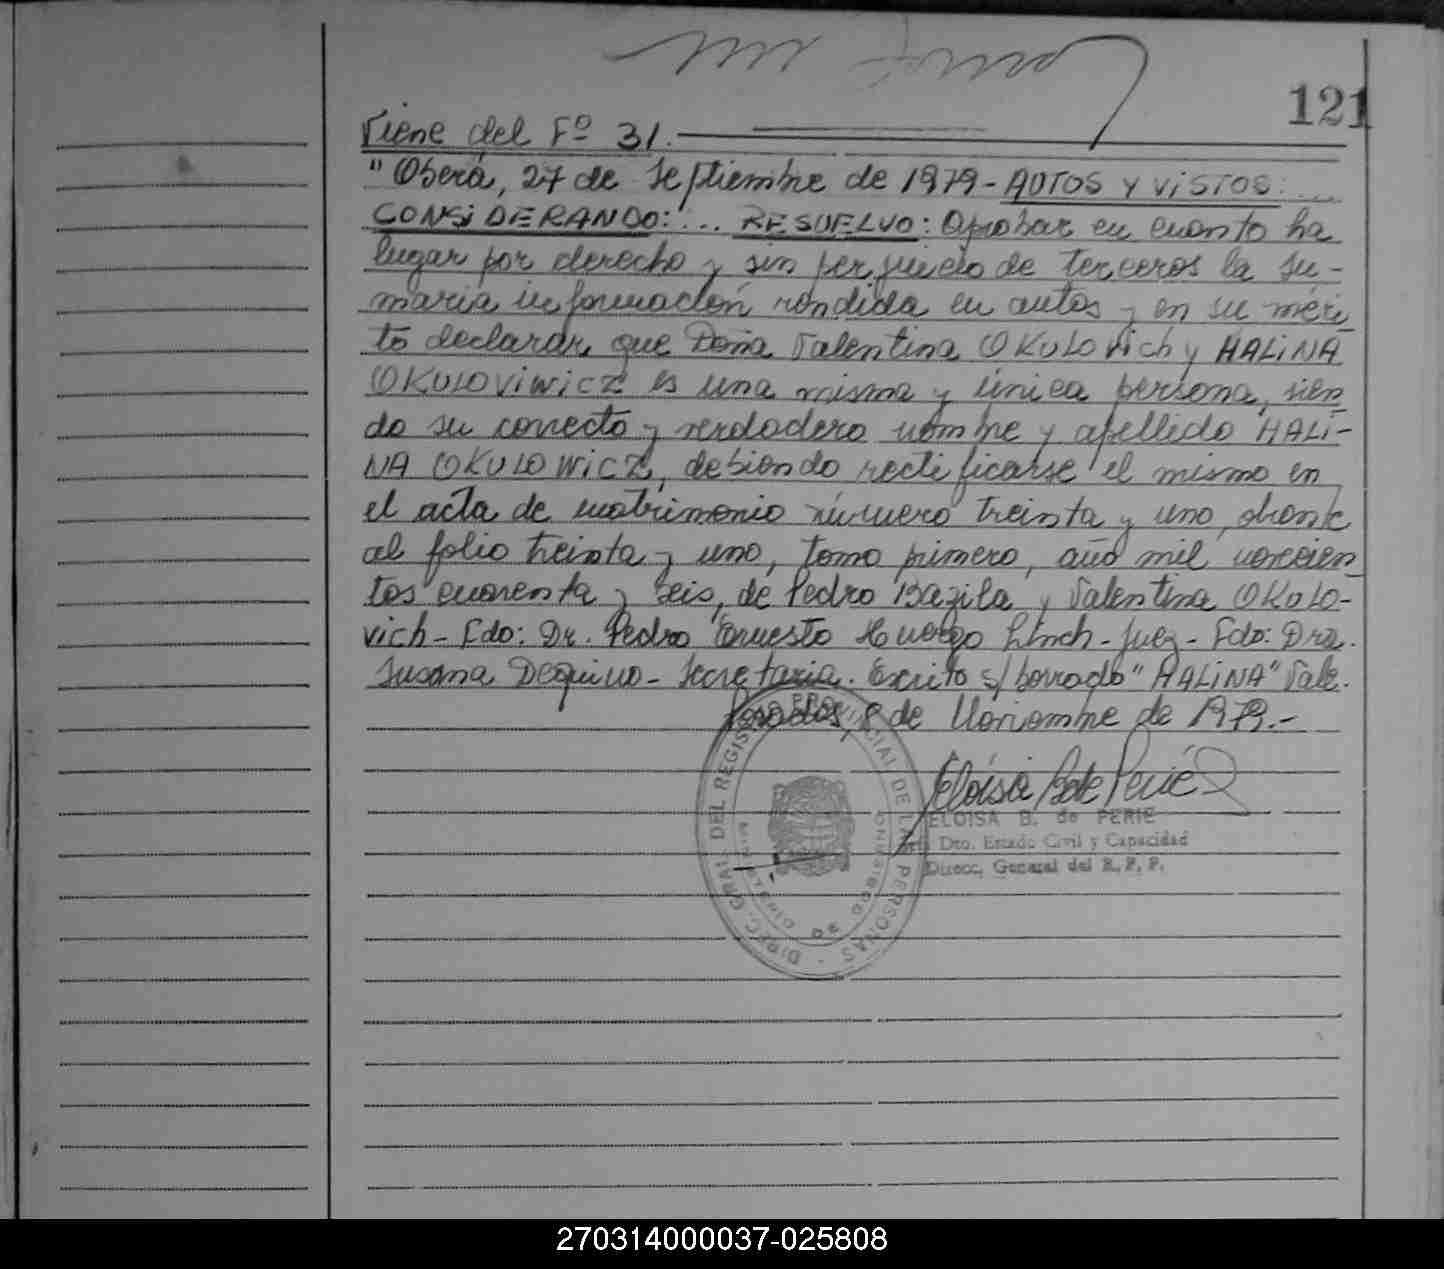 121
Viene del Fº 31.
"Oberá, 27 de Septiembre de 1979 - AUTOS Y VISTOS: ...
CONSIDERANDO: ... RESUELVO: Aprobar en cuanto ha
lugar por derecho y sin perjuicio de terceros la su-
maria información rendida en autos y en su méri
to declarar que Doña Valentina OKULOvich y HALiNA
OKULOViWiCZ es una misma y única persona, sien
do su correcto y verdadero nombre y apellido HALi-
NA OKULOWiCZ, debiendo rectificarse el mismo en
el acta de matrimonio número treinta y uno, obrante
al folio treinta y uno, tomo primero, año mil novecien
tos cuarenta y seis, de Pedro Bazila y Valentina OKULO-
vich - Fdo: Dr. Pedro Ernesto Huergo Linch - Juez - Fdo: Dra.
Susana Dequino - Secretaria. Escrito s/ borrado "HALiNA" Vale.
Posadas, 8 de Noviembre de 1979.-
ELOISA B. de PERIE
Dto. Estado Civil y Capacidad
Direcc. General del R. P. P.
DIREC. GRAL. DEL REGISTRO PROVINCIAL DE LAS PERSONAS
270314000037-025808